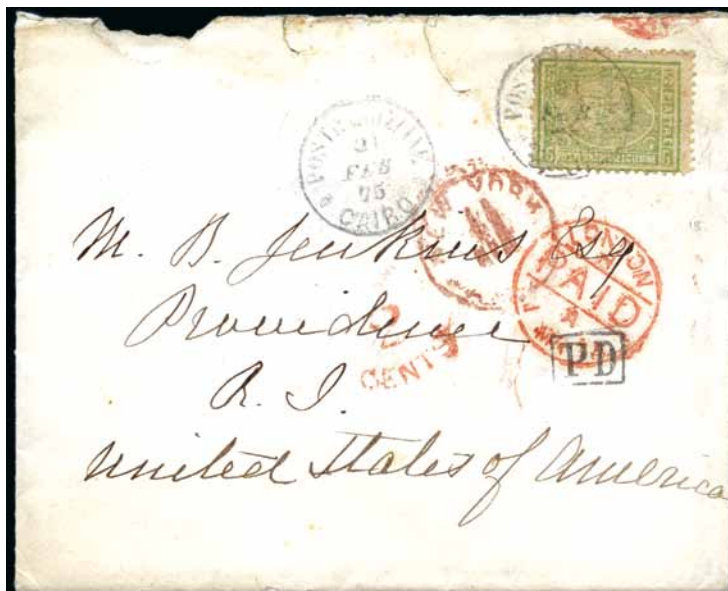 POSTE EGIZIANE
21
FEB
75
CAIRO
NEW YORK
LONDON
PAID
PD
2
CENTS
M. B. Jenkins Esq
Providence
R. I.
United States of America